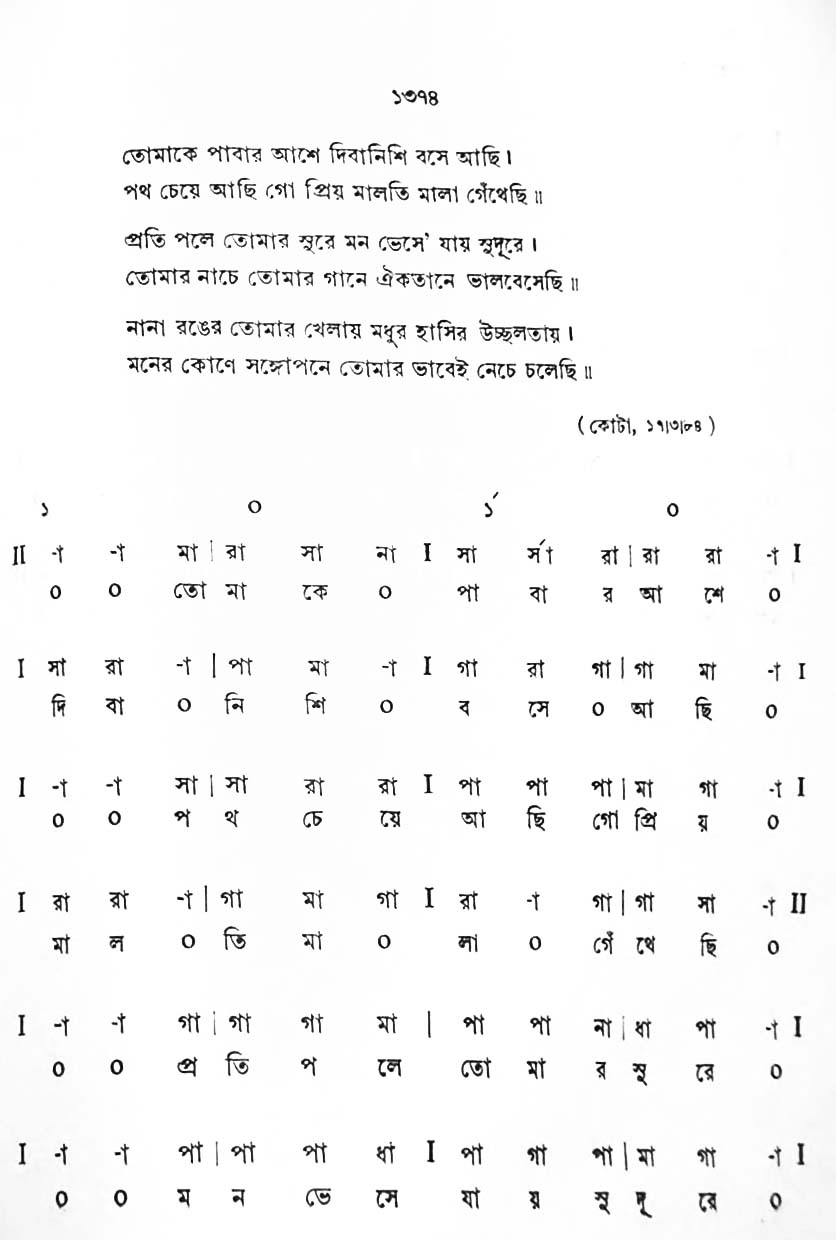 ১৩৭৪
তোমাকে পাবার আশে দিবানিশি বসে আছি।
পথ চেয়ে আছি গো প্রিয় মালতি মালা গেঁথেছি॥
প্রতি পলে তোমার সুরে মন ভেসে' যায় সুদূরে।
তোমার নাচে তোমার গানে ঐকতানে ভালবেসেছি॥
নানা রঙের তোমার খেলায় মধুর হাসির উচ্ছলতায়।
মনের কোণে সঙ্গোপনে তোমার ভাবেই নেচে চলেছি॥
(কোটা, ১৭।৩।৮৪)
১ ০ ১́ ০
II -া -া মা | রা সা না I সা র্সা রা | রা রা -া I
০ ০ তো মা কে ০ পা বা র আ শে ০
I সা রা -া | পা মা -া I গা রা গা | গা মা -া I
দি বা ০ নি শি ০ ব সে ০ আ ছি ০
I -া -া সা | সা রা রা I পা পা পা | মা গা -া I
০ ০ প থ চে য়ে আ ছি গো প্রি য় ০
I রা রা -া | গা মা গা I রা -া গা | গা সা -া II
মা ল ০ তি মা ০ লা ০ গেঁ থে ছি ০
I -া -া গা | গা গা মা | পা পা না | ধা পা -া I
০ ০ প্র তি প লে তো মা র সু রে ০
I -া -া পা | পা পা ধা I পা গা পা | মা গা -া I
০ ০ ম ন ভে সে যা য় সু দূ রে ০